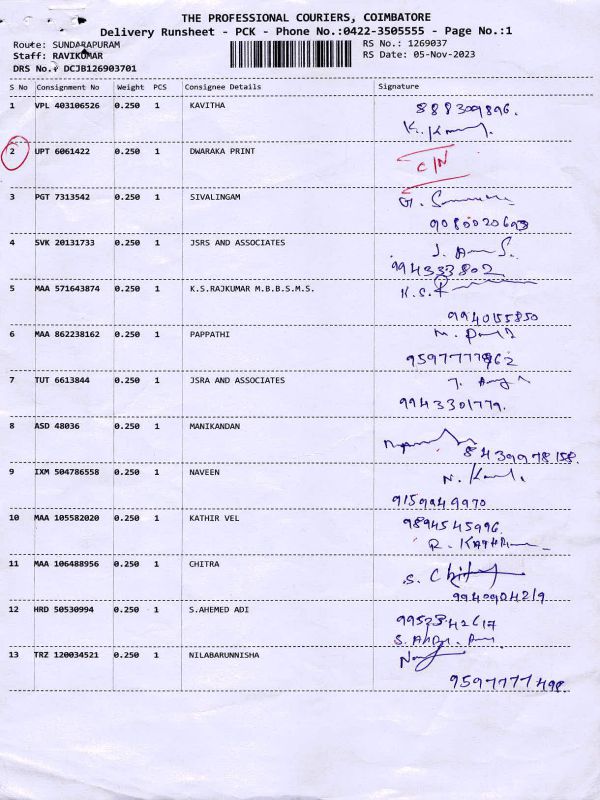 THE PROFESSIONAL COURIERS, COIMBATORE
Delivery Runsheet - PCK - Phone No.:0422-3505555 - Page No.:1
Route: SUNDARAPURAM RS No.: 1269037
Staff: RAVIKUMAR RS Date: 05-Nov-2023
DRS No.: DCJB126903701
S No Consignment No Weight PCS Consignee Details Signature
1 VPL 403106526 0.250 1 KAVITHA
888309896.
2 UPT 6061422 0.250 1 DWARAKA PRINT C/N
3 PGT 7313542 0.250 1 SIVALINGAM
9080020693
4 SVK 20131733 0.250 1 JSRS AND ASSOCIATES
994333802
5 MAA 571643874 0.250 1 K.S.RAJKUMAR M.B.B.S.M.S. K.S.R
9940155850
6 MAA 862238162 0.250 1 PAPPATHI
9597777962
7 TUT 6613844 0.250 1 JSRA AND ASSOCIATES
9943301779.
8 ASD 48036 0.250 1 MANIKANDAN
8439978158.
9 IXM 504786558 0.250 1 NAVEEN
9159949970
10 MAA 105582020 0.250 1 KATHIR VEL 9894545996.
11 MAA 106488956 0.250 1 CHITRA S. Chitra
9940904219
12 HRD 50530994 0.250 1 S.AHEMED ADI
13 TRZ 120034521 0.250 1 NILABARUNNISHA
9597777498.